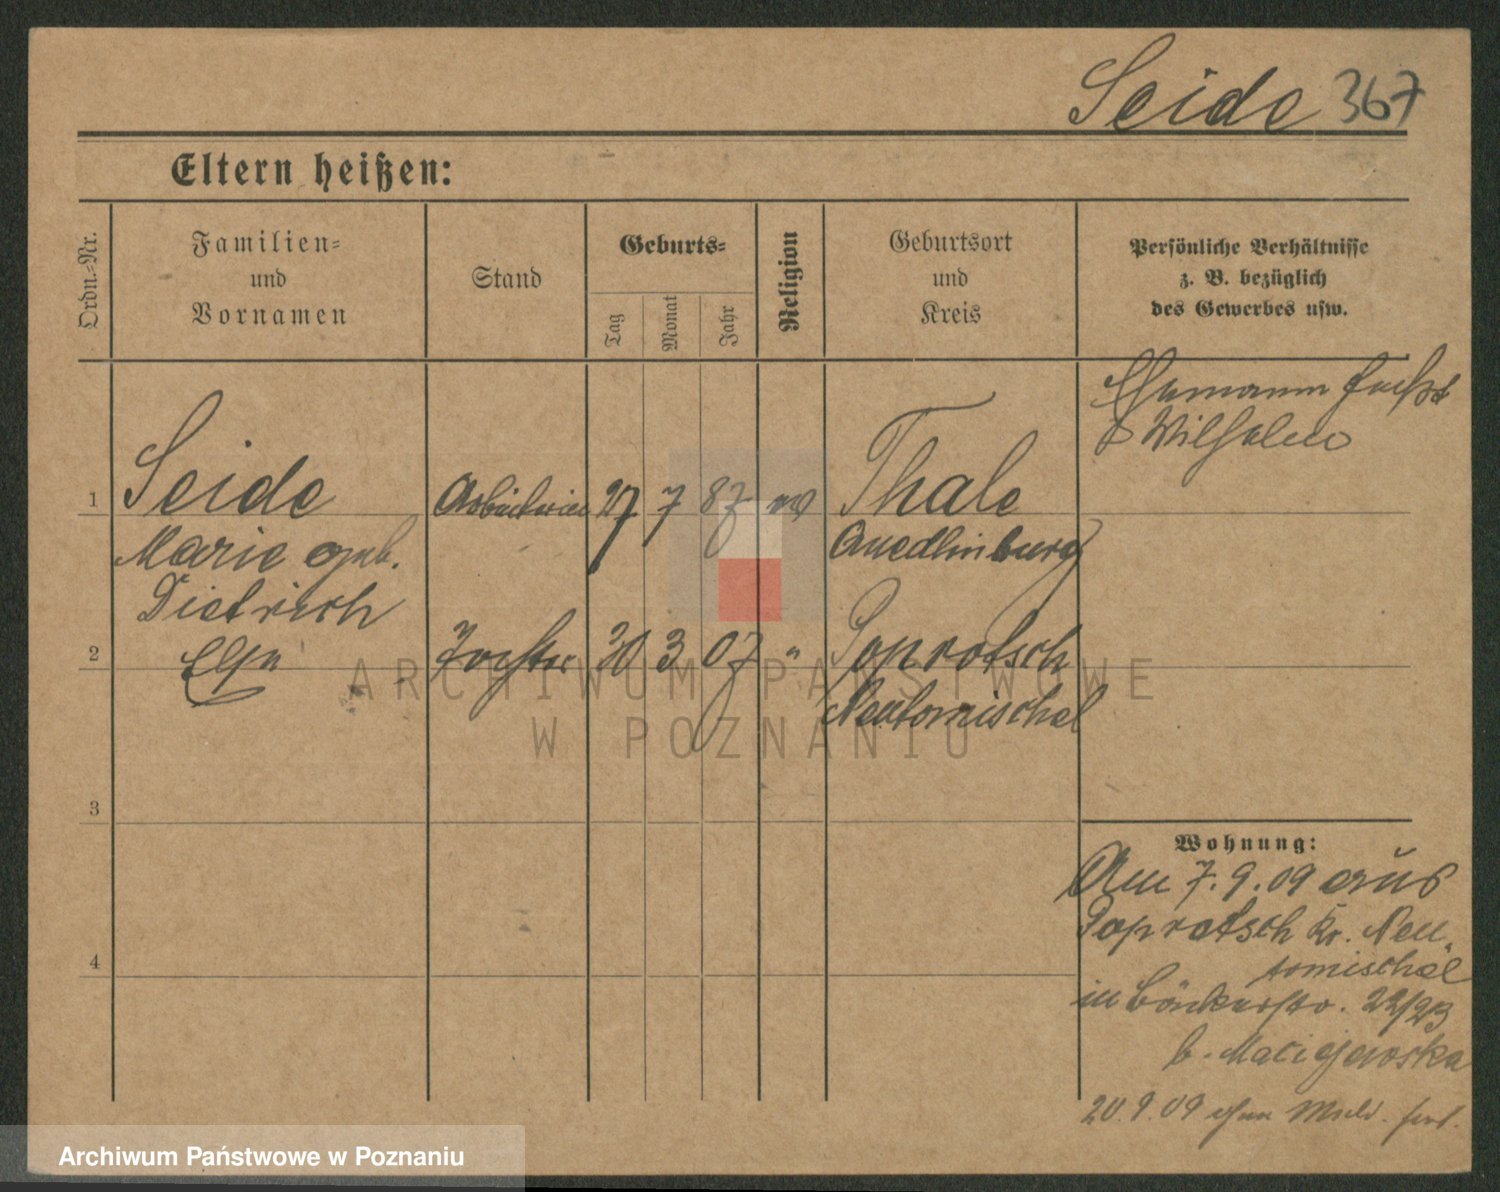 Seide 367
Eltern heißen:
Ordn.-Nr.
Familien-
und
Vornamen
Stand
Geburts-
Tag
Monat
Jahr
Religion
Geburtsort
und
Kreis
Persönliche Verhältnisse
z. B. bezüglich
des Gewerbes usw.
Ehemann heißt
Wilhelm
1 Seide Arbeiterin 27 7 87 ev Thale
Marie geb. Quedlinburg
Dietrich
2 Elsa Tochter 30 3 07 " Paprotsch
Neutomischel
3
4
Wohnung:
Am 7.9.09 aus
Paprotsch Kr. Neu-
tomischel
in Bäckerstr. 22/23
b. Maciejewska
20.9.09 ohne Meld. fort.
ARCHIWUM PAŃSTWOWE
W POZNANIU
Archiwum Państwowe w Poznaniu